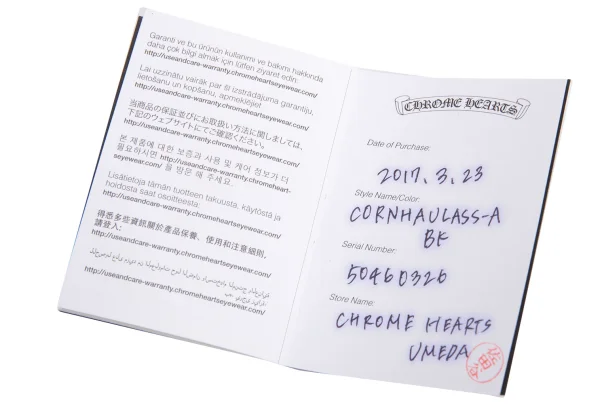 Garanti ve bu ürünün kullanımı ve bakımı hakkında
daha çok bilgi almak için lütfen ziyaret edin:
http://useandcare-warranty.chromeheartseyewear.com/
Lai uzzinātu vairāk par šī izstrādājuma garantiju,
lietošanu un kopšanu, apmeklējiet
http://useandcare-warranty.chromeheartseyewear.com/
当商品の保証並びにお取扱い方法に関しましては、
下記のウェブサイトにてご確認ください。
http://useandcare-warranty.chromeheartseyewear.com/
본 제품에 대한 보증과 사용 및 케어 정보가 더
필요하시면 http://useandcare-warranty.chromehearts-
eyewear.com/ 을 방문 해 주세요.
Lisätietoja tämän tuotteen takuusta, käytöstä ja
hoidosta saat osoitteesta:
http://useandcare-warranty.chromeheartseyewear.com/
得悉多些資訊關於產品保養、使用和注意細則，
請登入:
http://useandcare-warranty.chromeheartseyewear.com/
http://useandcare-warranty.chromeheartseyewear.com/
CHROME HEARTS
Date of Purchase:
2017. 3. 23
Style Name/Color:
CORNHAULASS-A
BK
Serial Number:
50460326
Store Name:
CHROME HEARTS
UMEDA